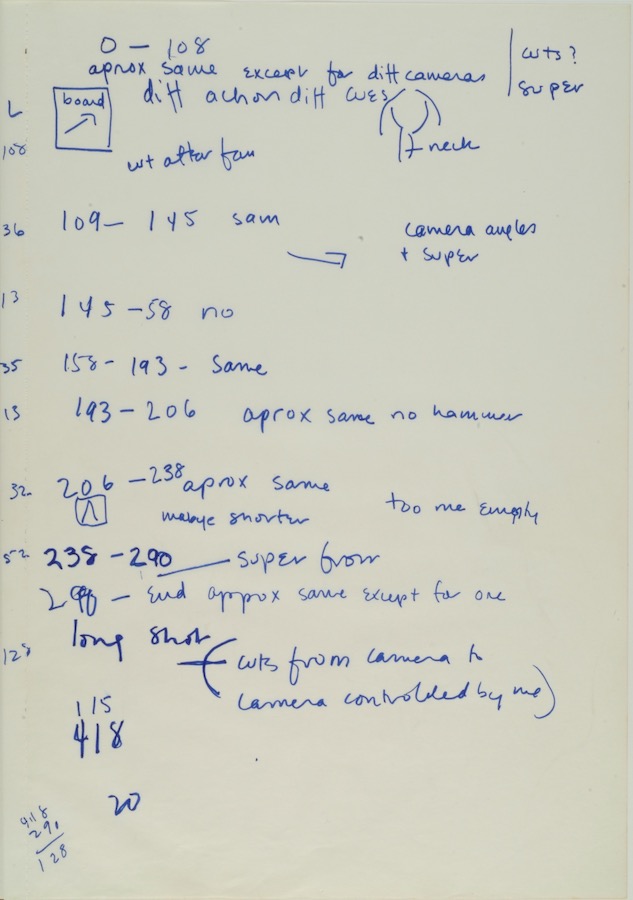 0 — 108
aprox same except for diff cameras
diff action diff cues
cuts?
super
board
L
108
cut after fan
neck
36 109 — 145 sam
camera angles
+ super
13 145 — 58 no
35 158 - 193 - same
13 193 - 206 aprox same no hammer
32 206 - 238 aprox same
maybye shorter
too me empty
52 238 - 290 super from
290 - End approx same except for one
long shot
128
(cuts from camera to
camera controlded by me)
115
418
20
418
290
128